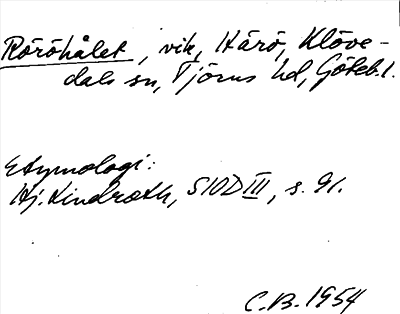 Röröhålet, vik, Härö, Klöve-
dals sn, Tjörns hd, Göteb. l.
Etymologi:
Hj. Lindroth, SIOD III, s. 91.
C.B. 1954